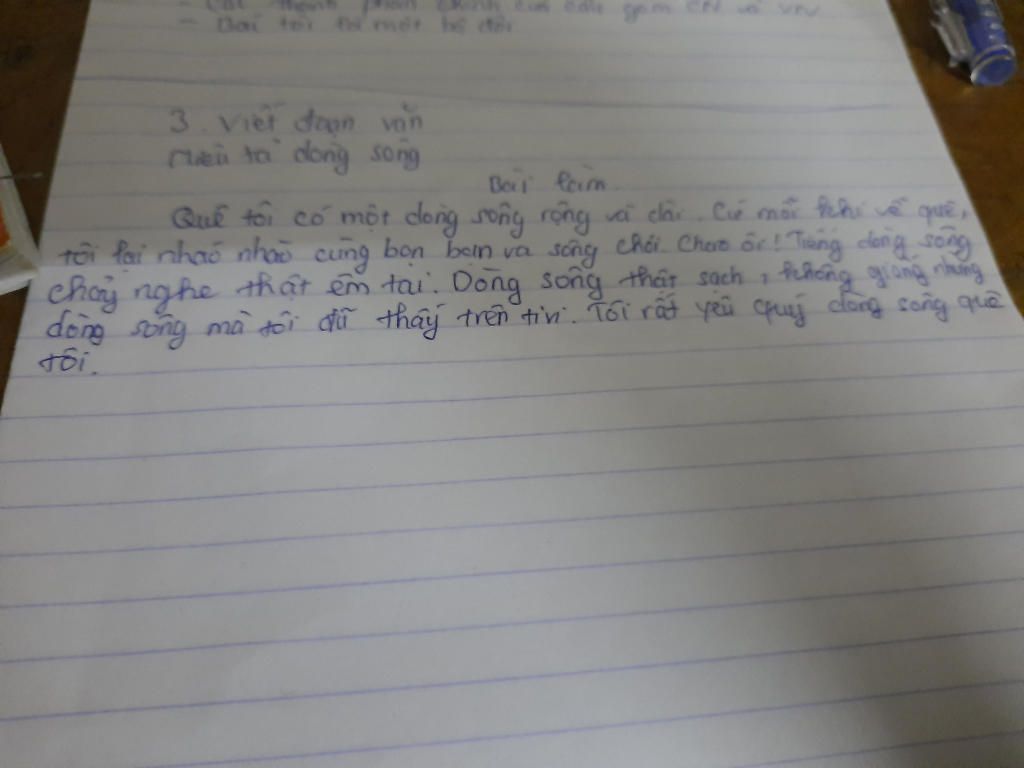 - Các thành phần chính của câu gồm CN và VN
- Bai tôi là một bộ đôi
3. Viết đoạn văn
Miêu tả dòng sông
Bài làm
Quê tôi có một dòng sông rộng và dài. Cứ mỗi khi về quê,
tôi lại nhao nhao cùng bọn bạn va sông chơi. Chao ôi! Tiếng dòng sông
chảy nghe thật êm tai. Dòng sông thật sạch, không giống những
dòng sông mà tôi đã thấy trên tivi. Tôi rất yêu quý dòng sông quê
tôi.